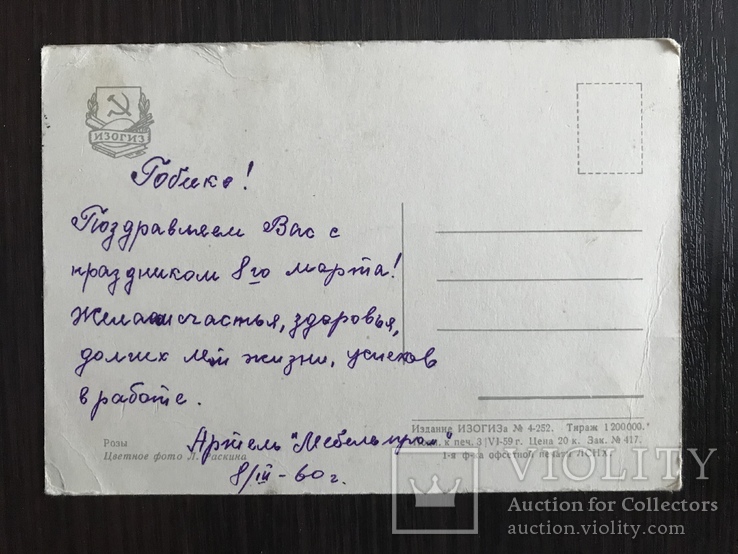 ИЗОГИЗ
Гобико!
Поздравляем Вас с
праздником 8го марта!
Желаем счастья, здоровья,
долгих лет жизни, успехов
в работе.
Артель "Мебельпром"
8/III-60 г.
Розы
Цветное фото Л. Раскина
Издание ИЗОГИЗа № 4-252. Тираж 1200000.
к печ. 3/VI-59 г. Цена 20 к. Зак. № 417.
1-я ф-ка офсетной печати ЛСНХ.
VIOLITY
Auction for Collectors
auction.violity.com